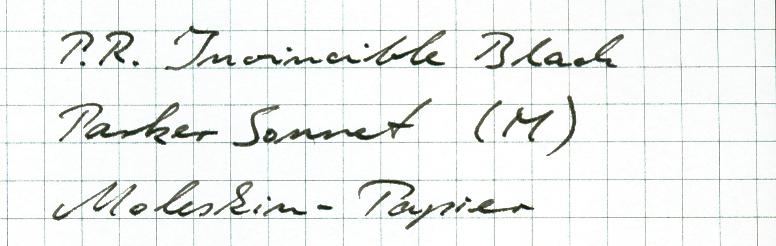 P.R. Invincible Black
Parker Sonnet (M)
Moleskin-Papier